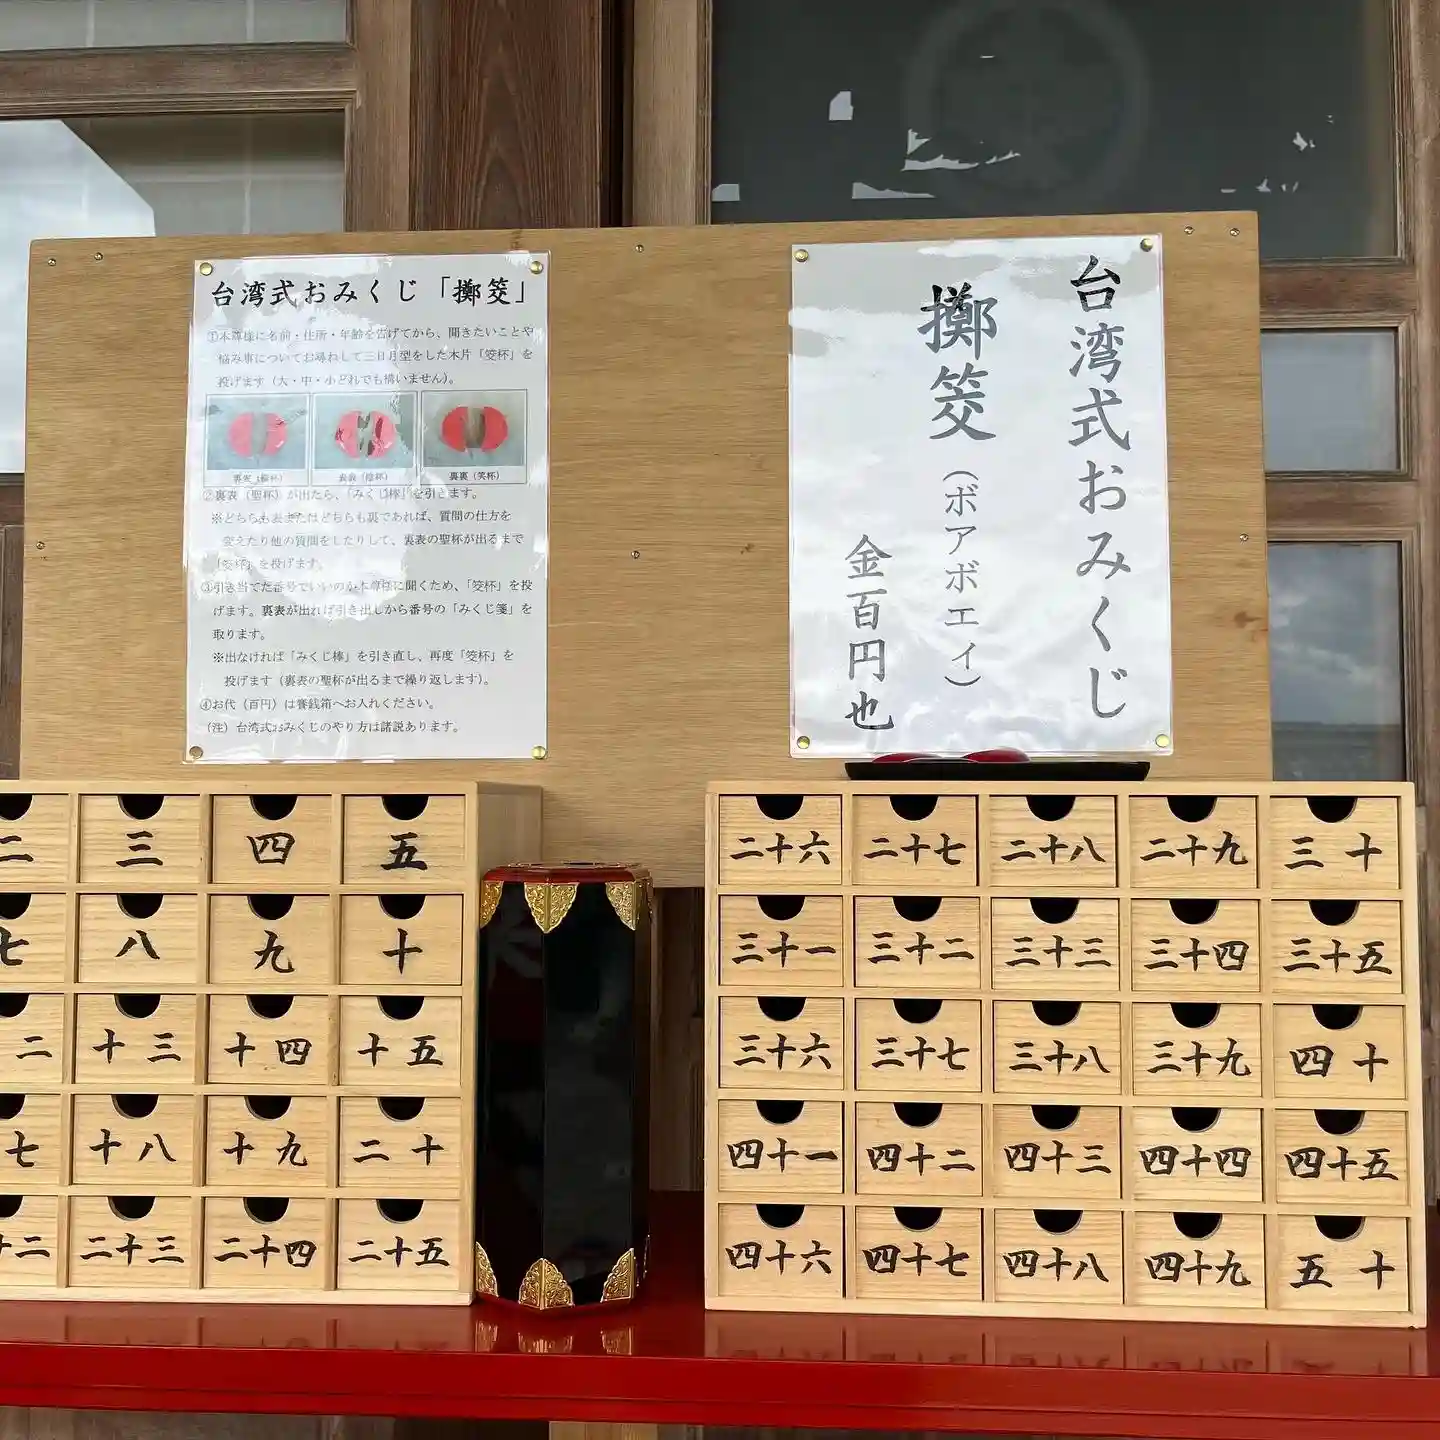 台湾式おみくじ「擲筊」
①本尊様に名前・住所・年齢を告げてから、聞きたいことや
悩み事についてお尋ねして三日月型をした木片「筊杯」を
投げます（大・中・小どれでも構いません）。
裏表（聖杯）
表表（陰杯）
裏裏（笑杯）
②裏表（聖杯）が出たら、「みくじ棒」を引きます。
※どちらも表またはどちらも裏であれば、質問の仕方を
変えたり他の質問をしたりして、裏表の聖杯が出るまで
「筊杯」を投げます。
③引き当てた番号でいいのか本尊様に聞くため、「筊杯」を投
げます。裏表が出れば引き出しから番号の「みくじ箋」を
取ります。
※出なければ「みくじ棒」を引き直し、再度「筊杯」を
投げます（裏表の聖杯が出るまで繰り返します）。
④お代（百円）は賽銭箱へお入れください。
（注）台湾式おみくじのやり方は諸説あります。
台湾式おみくじ
擲筊（ボアボエィ）
金百円也
二 三 四 五
七 八 九 十
二 十三 十四 十五
七 十八 十九 二十
十二 二十三 二十四 二十五
二十六 二十七 二十八 二十九 三十
三十一 三十二 三十三 三十四 三十五
三十六 三十七 三十八 三十九 四十
四十一 四十二 四十三 四十四 四十五
四十六 四十七 四十八 四十九 五十